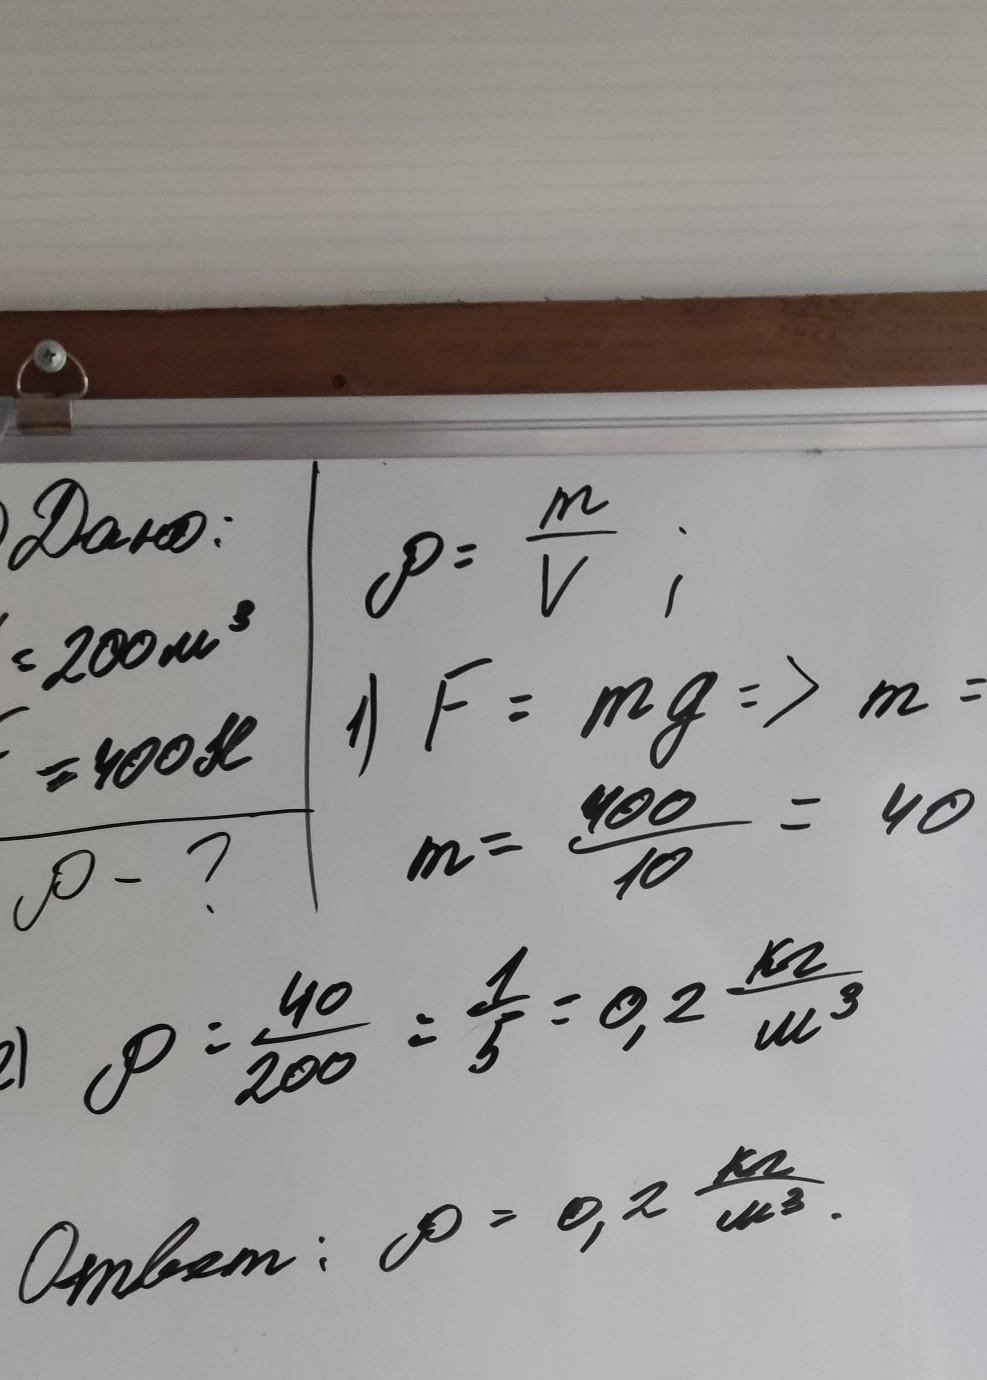 ) Дано:
= 200 м³
F = 400 Н
ρ - ?
ρ = m/V ;
1) F = mg => m =
m = 400/10 = 40
2) ρ = 40/200 = 1/5 = 0,2 кг/м³
Ответ: ρ = 0,2 кг/м³.